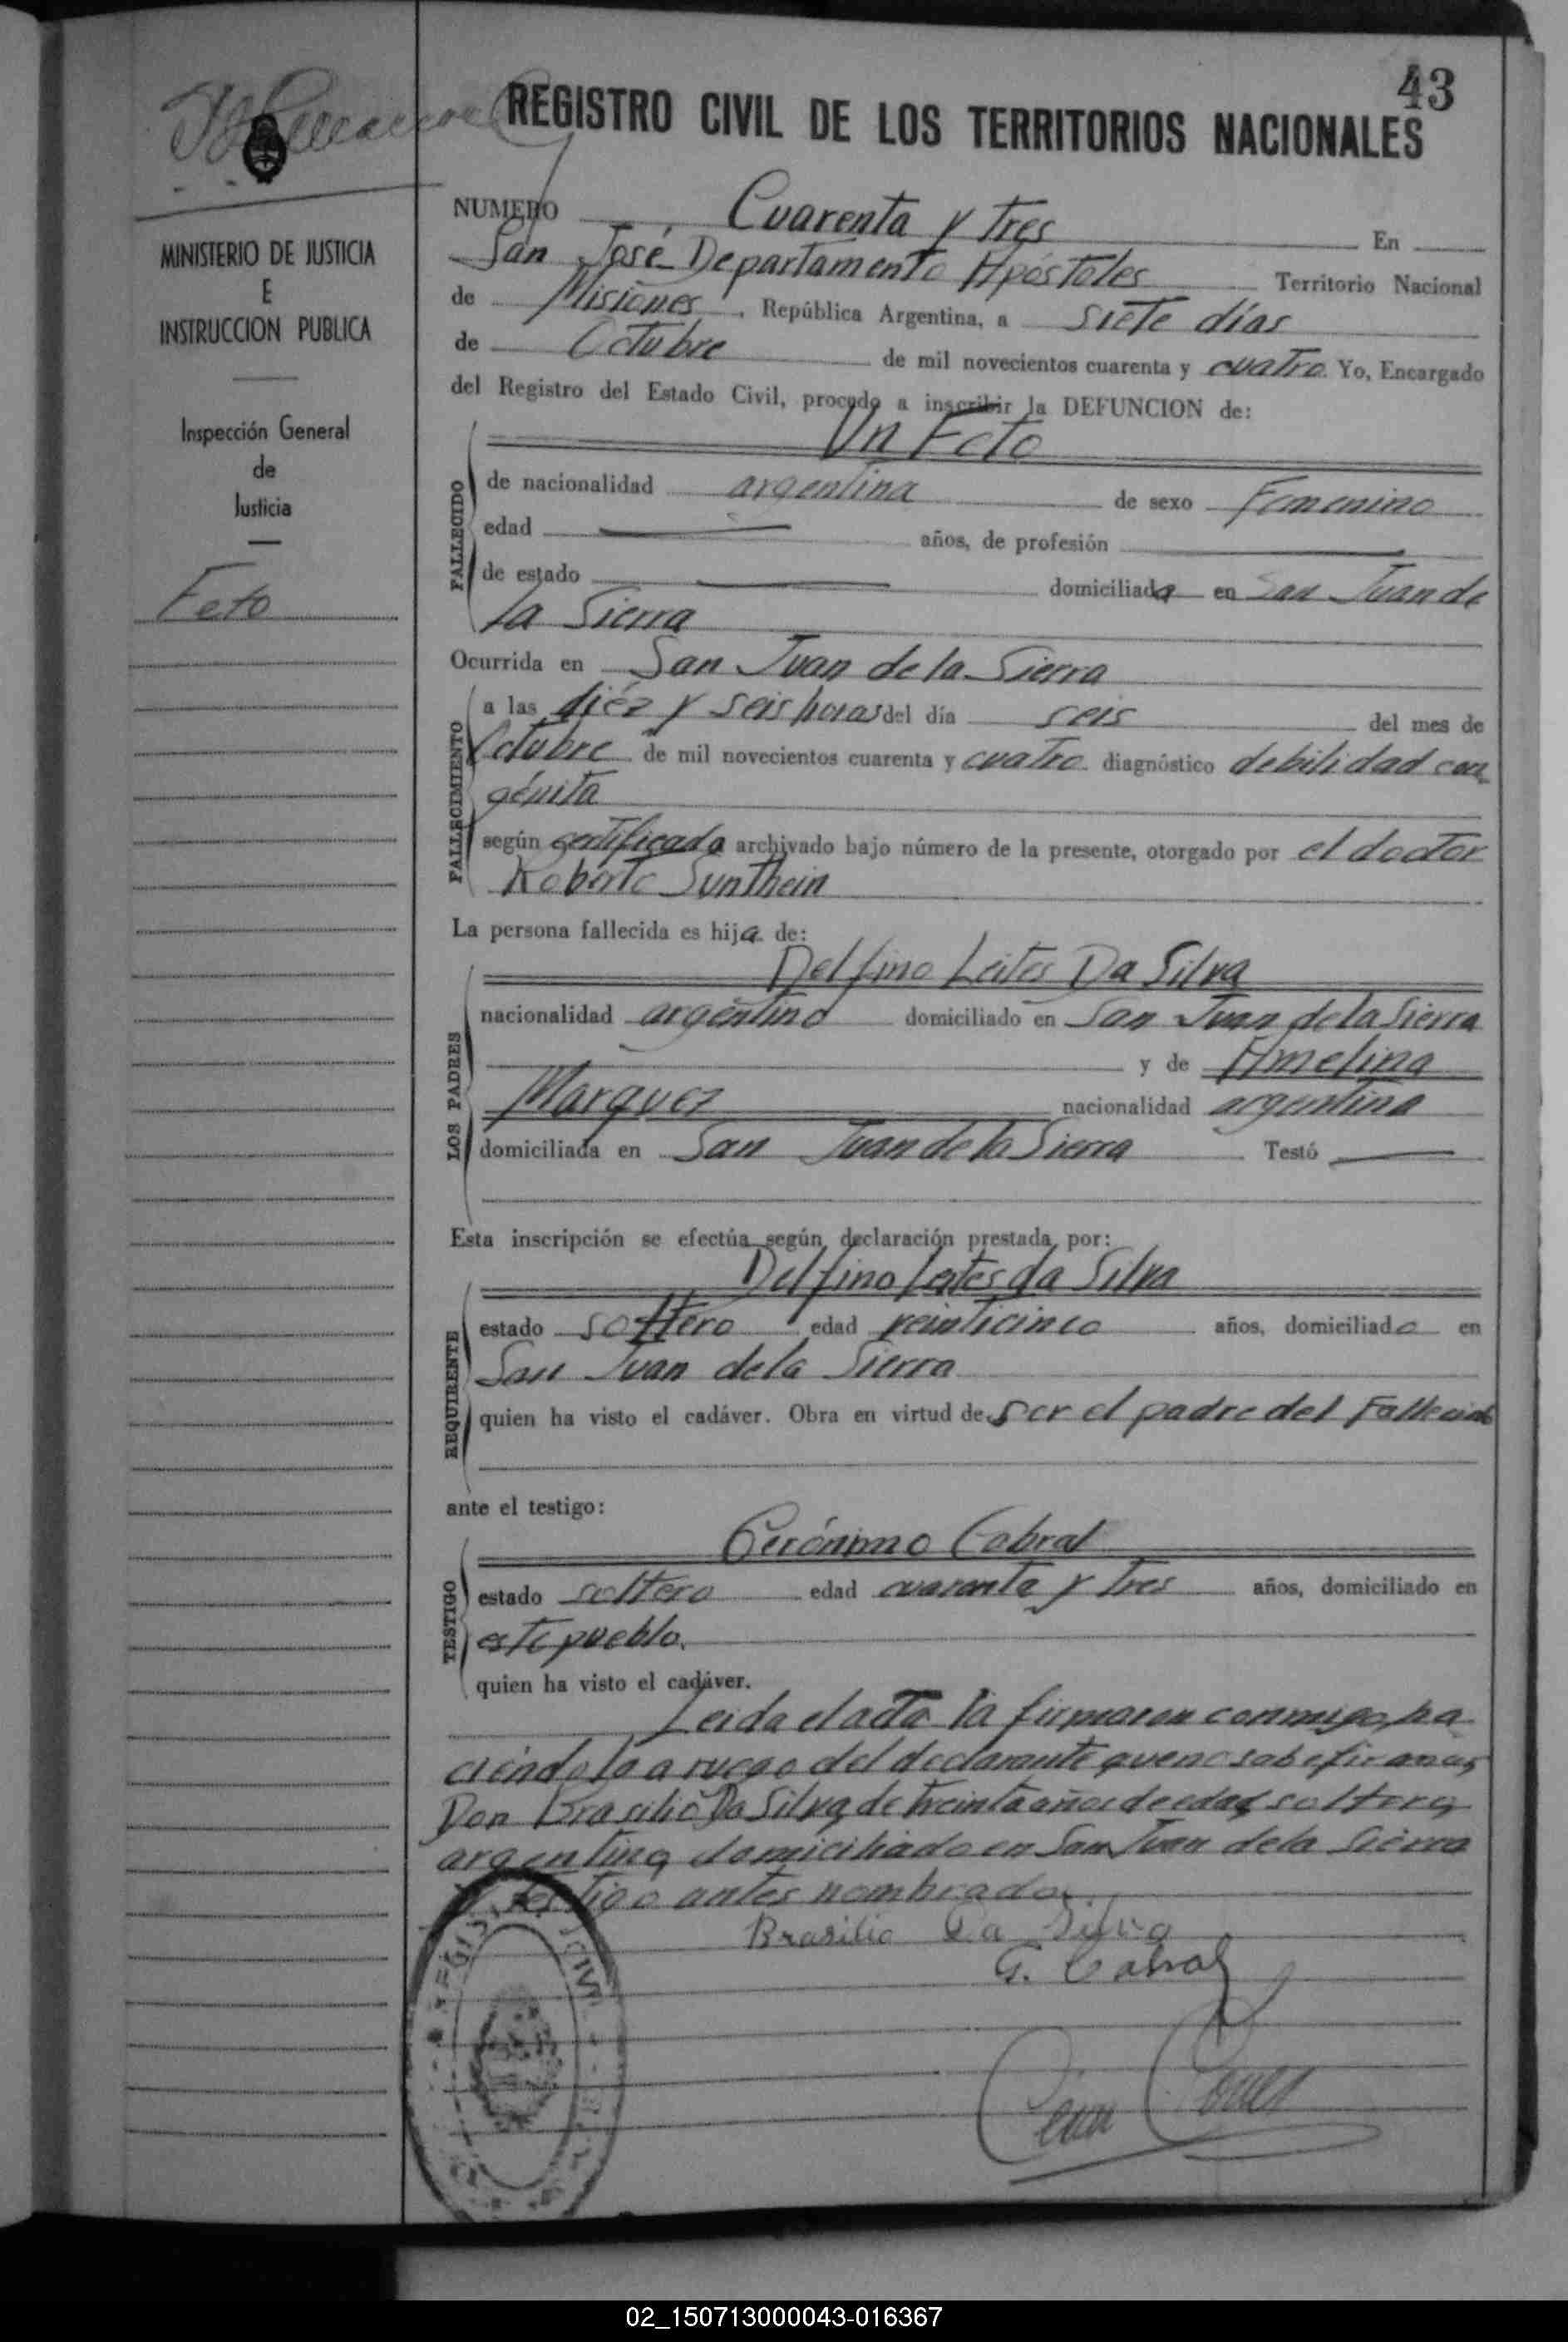 43
REGISTRO CIVIL DE LOS TERRITORIOS NACIONALES
MINISTERIO DE JUSTICIA
E
INSTRUCCION PUBLICA
Inspección General
de
Justicia
Feto
NUMERO Cuarenta y tres En
San José Departamento Apóstoles Territorio Nacional
de Misiones, República Argentina, a siete días
de Octubre de mil novecientos cuarenta y cuatro Yo, Encargado
del Registro del Estado Civil, procedo a inscribir la DEFUNCION de:
Un Feto
FALLECIDO
de nacionalidad argentina de sexo Femenino
edad años, de profesión
de estado domiciliada en San Juan de
la Sierra
Ocurrida en San Juan de la Sierra
FALLECIMIENTO
a las diéz y seis horas del día seis del mes de
Octubre de mil novecientos cuarenta y cuatro diagnóstico debilidad con
génita
según certificado archivado bajo número de la presente, otorgado por el doctor
Roberto Sunthein
La persona fallecida es hija de:
LOS PADRES
Delfino Leites Da Silva
nacionalidad argentino domiciliado en San Juan de la Sierra
y de Amelina
Marquez nacionalidad argentina
domiciliada en San Juan de la Sierra Testó
Esta inscripción se efectúa según declaración prestada por:
REQUIRENTE
Delfino Leites da Silva
estado soltero edad veinticinco años, domiciliado en
San Juan de la Sierra
quien ha visto el cadáver. Obra en virtud de ser el padre del Fallecido
ante el testigo:
TESTIGO
Gerónimo Cabral
estado soltero edad cuarenta y tres años, domiciliado en
este pueblo.
quien ha visto el cadáver.
Leida el acta la firmaron conmigo, ha
ciéndolo a ruego del declarante que no sabe firmar,
Don Brasilio Da Silva, de treinta años de edad, soltero,
argentino, domiciliado en San Juan de la Sierra
y testigo antes nombrado.
Brasilio Da Silva
G. Cabral
02_150713000043-016367